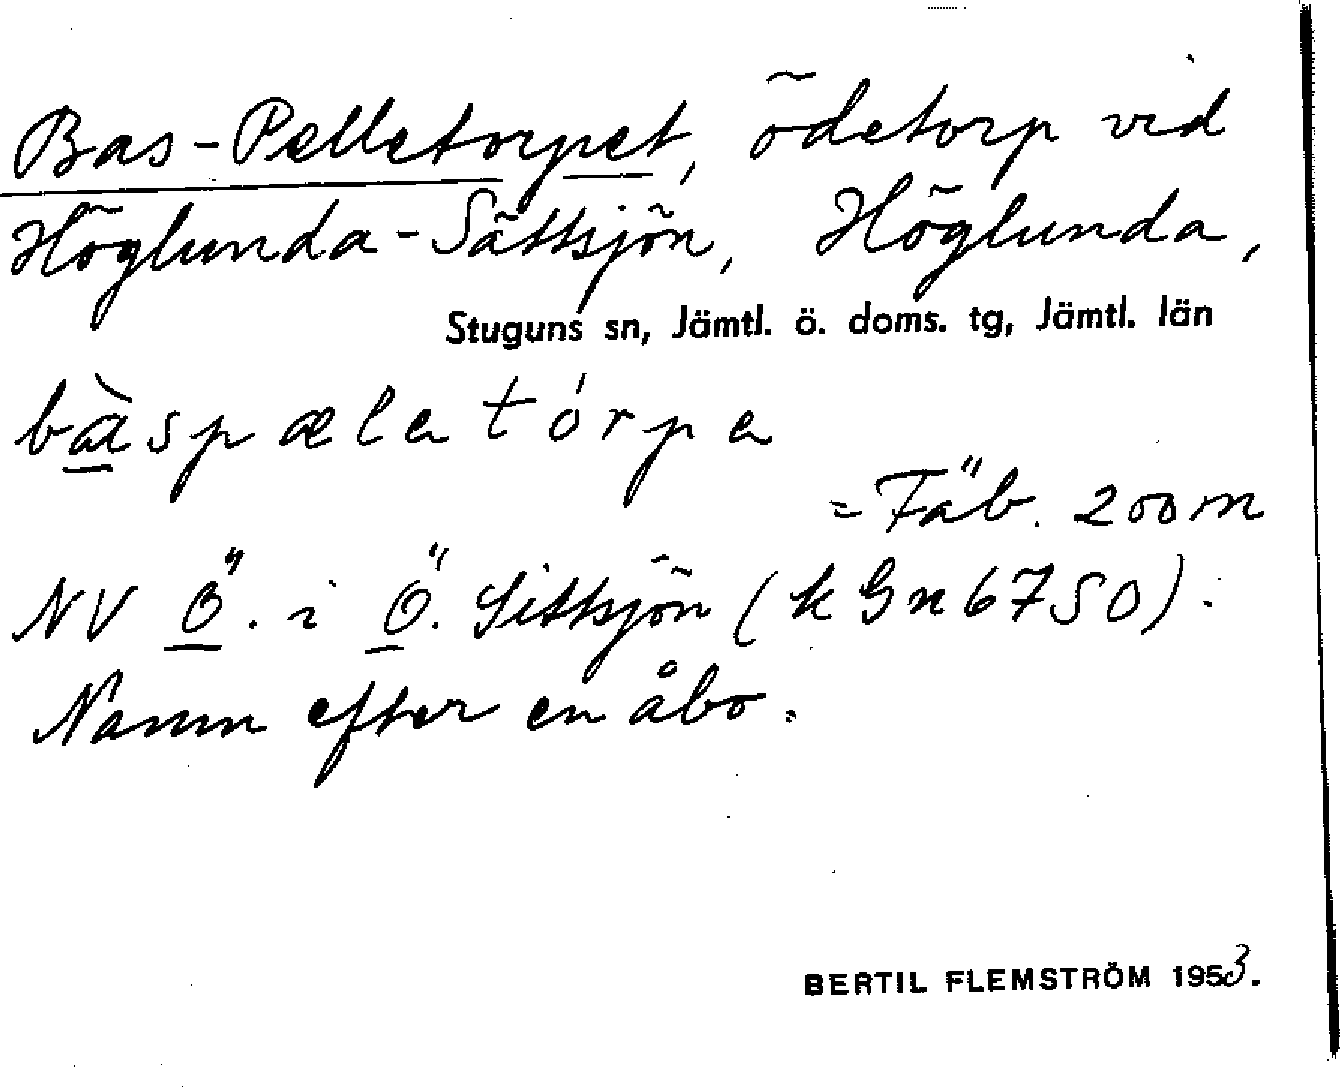 Bas-Pelletorpet, ödetorp vid
Höglunda-Sättsjön, Höglunda,
Stuguns sn, Jämtl. ö. doms. tg, Jämtl. län
bàspæle tórpe
= Fäb. 200 m
NV Ö. i Ö. Sittsjön (k Gn 6750).
Namn efter en åbo.
BERTIL FLEMSTRÖM 1953.